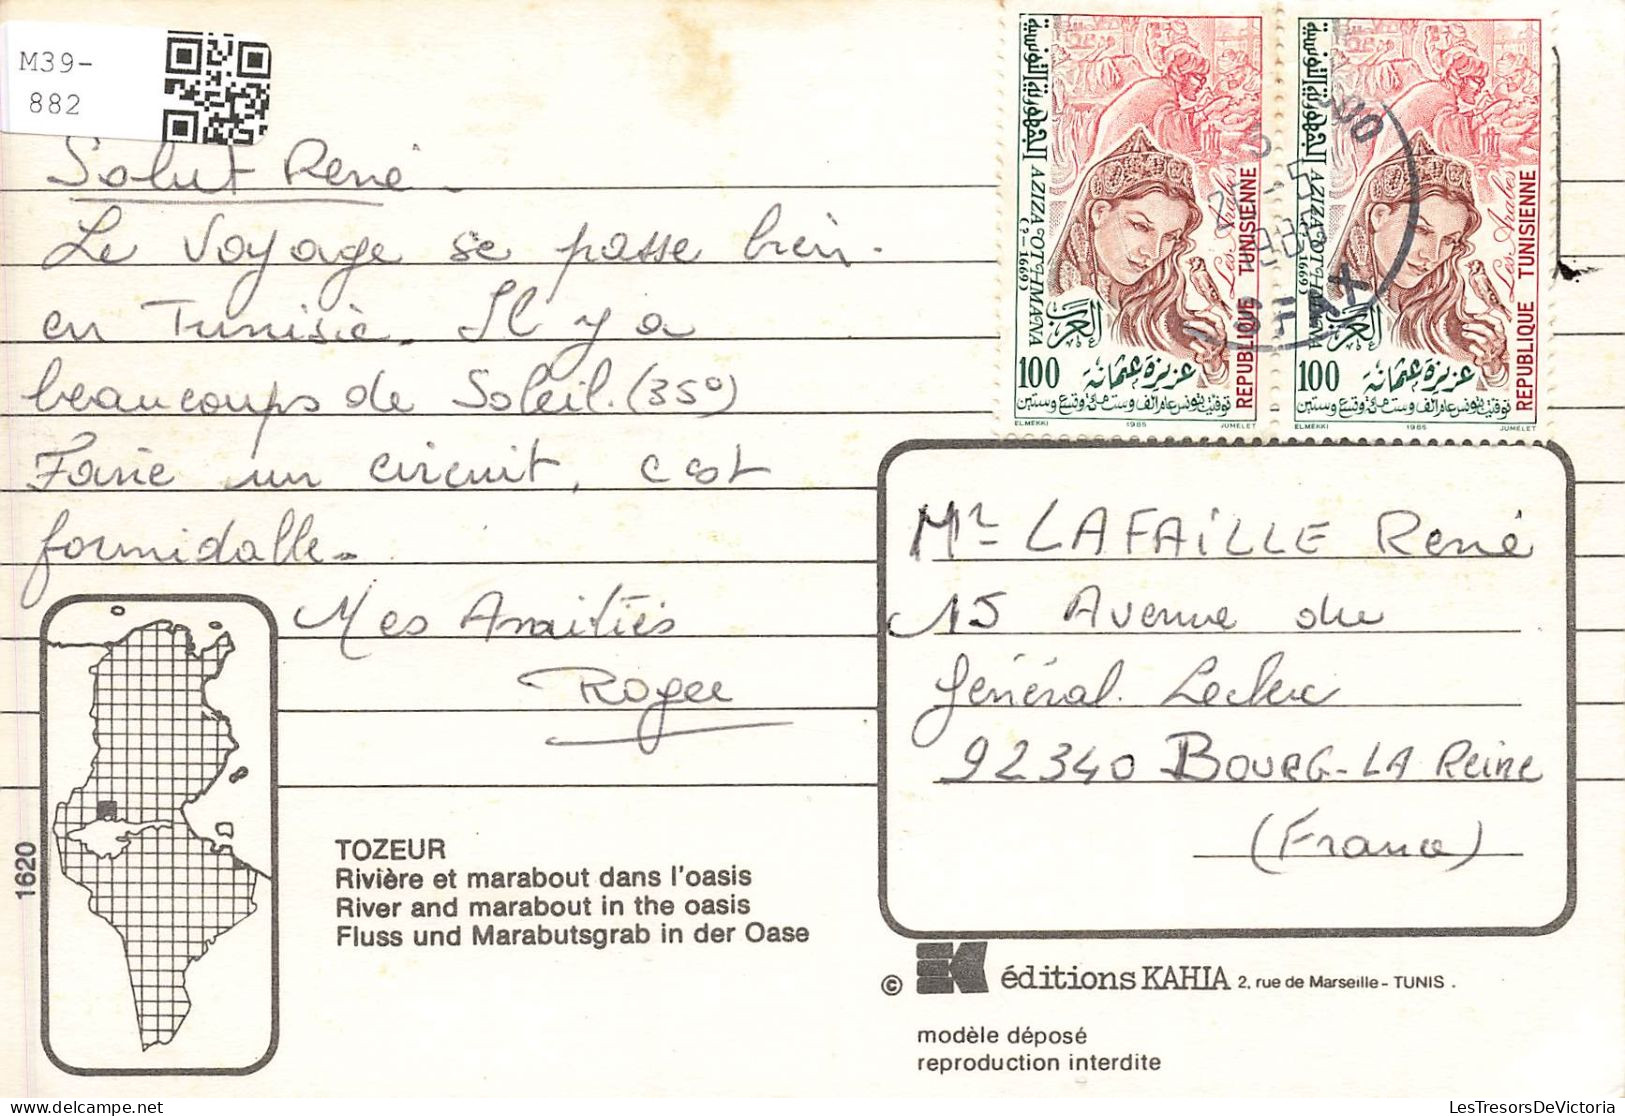 M39-
882
Salut René.
Le voyage se passe bien.
en Tunisie. Il y a
beaucoups de Soleil. (35°)
Faire un circuit, c est
formidable.
Mes Amitiés
Roger
الجمهورية التونسية
AZIZA OTHMANA
(? - 1669)
Les Arabes
REPUBLIQUE TUNISIENNE
100
عزيزة عثمانة
توفيت بتونس عام الف وست مئة وتسع وستين
EL MEKKI 1985 JUMELET
الجمهورية التونسية
AZIZA OTHMANA
(? - 1669)
REPUBLIQUE TUNISIENNE
100
عزيزة عثمانة
توفيت بتونس عام الف وست مئة وتسع وستين
EL MEKKI 1985 JUMELET
SFAX
Mr LAFAiLLE René
15 Avenue du
Général Leclerc
92340 BOURG-LA Reine
(France)
1620
TOZEUR
Rivière et marabout dans l'oasis
River and marabout in the oasis
Fluss und Marabutsgrab in der Oase
© EK éditions KAHIA 2, rue de Marseille - TUNIS .
modèle déposé
reproduction interdite
LesTresorsDeVictoria